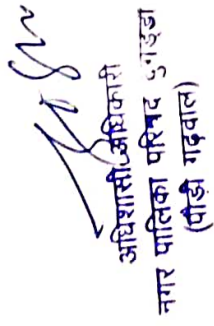 अधिशासी अधिकारी
नगर पालिका परिषद दुगड्डा
(पौड़ी गढ़वाल)